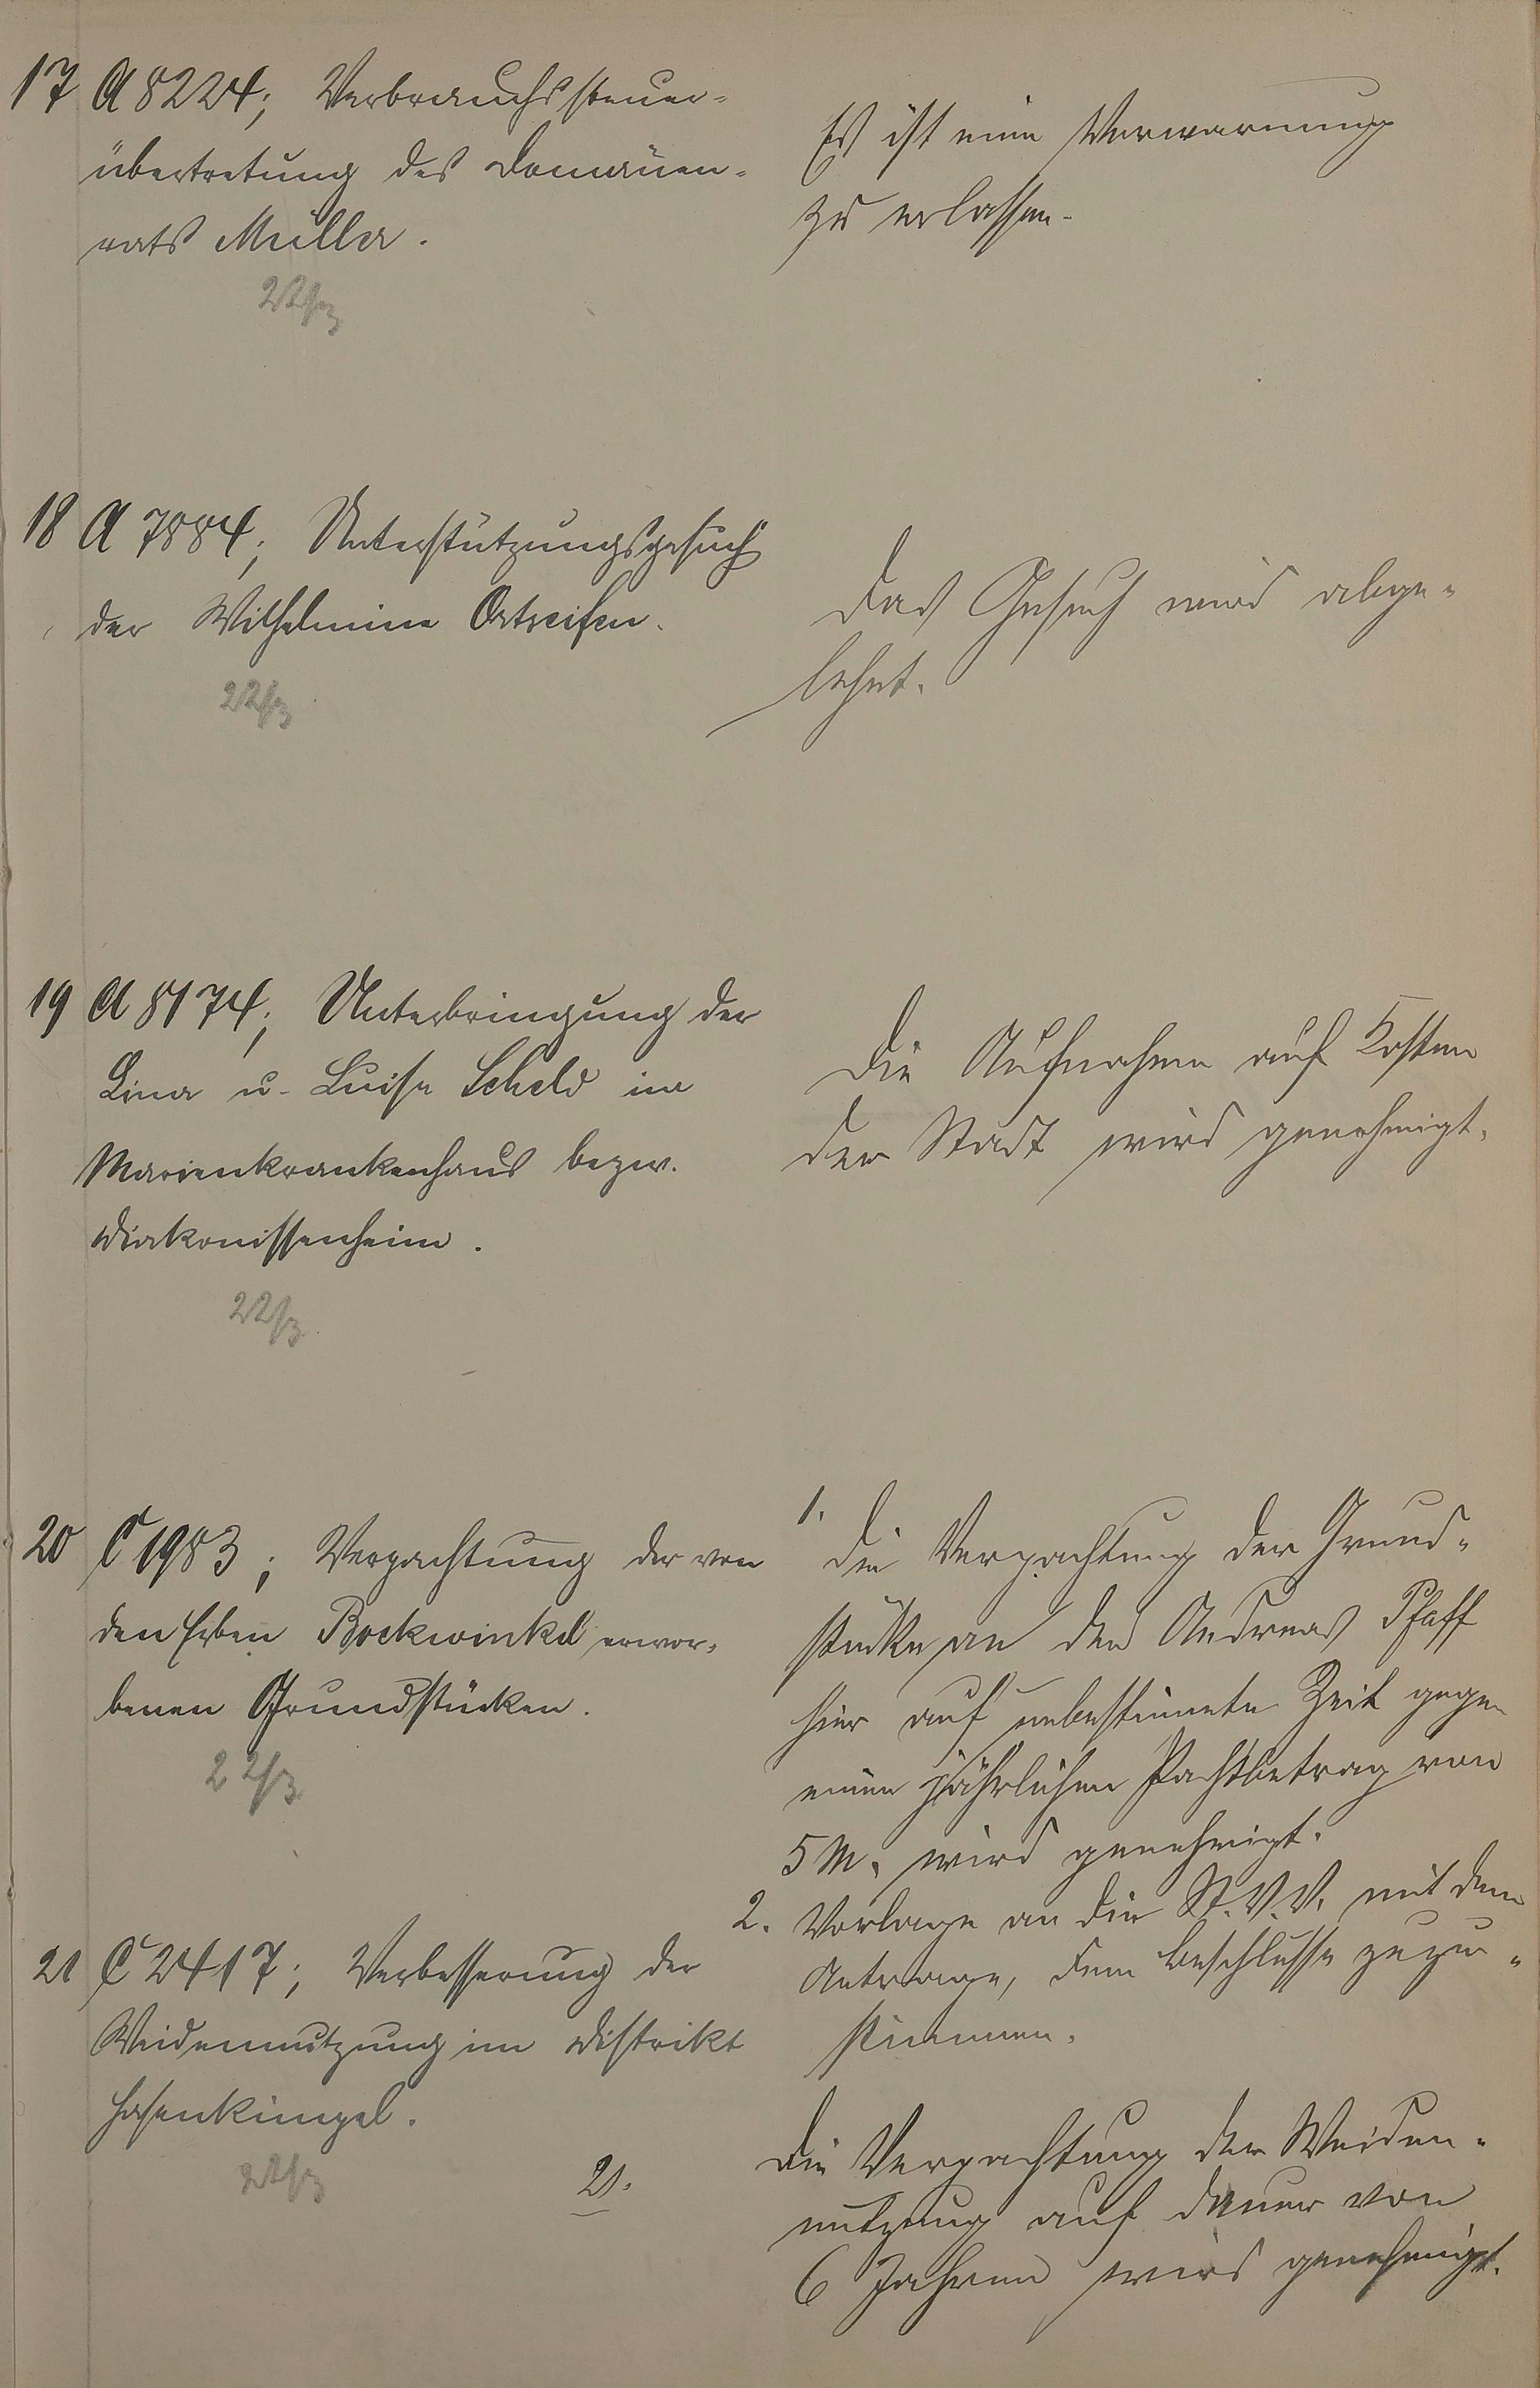 17 A 8224; Verbrauchssteuer-
übertretung des Domänen-
rats Müller.
22/3
Es ist eine Verwarnung
zu erlassen.
18 A 7884; Unterstützungsgesuch
der Wilhelmine Ostreifen.
22/3
Das Gesuch wird abge-
lehnt.
19 A 8174; Unterbringung der
Lina u. Luise Scheld im
Marienkrankenhaus bezw.
Diakonissenheim.
22/3
Die Aufnahme auf Kosten
der Stadt wird genehmigt.
20 C 1983; Verpachtung der von
den Erben Bockwinkel erwor-
benen Grundstücken.
22/3
1. Die Verpachtung der Grund-
stücke an den Andreas Pfaff
hier auf unbestimmte Zeit gegen
einen jährlichen Pachtbetrag von
5 M. wird genehmigt.
2. Vorlage an die St.V.V. mit dem
Antrage, dem Beschlusse zuzu-
stimmen.
21 C 2417; Verbesserung der
Weidennutzung im Distrikt
Hasenkimpel.
22/3
21.
Die Verpachtung der Weiden-
nutzung auf Dauer von
6 Jahren wird genehmigt.